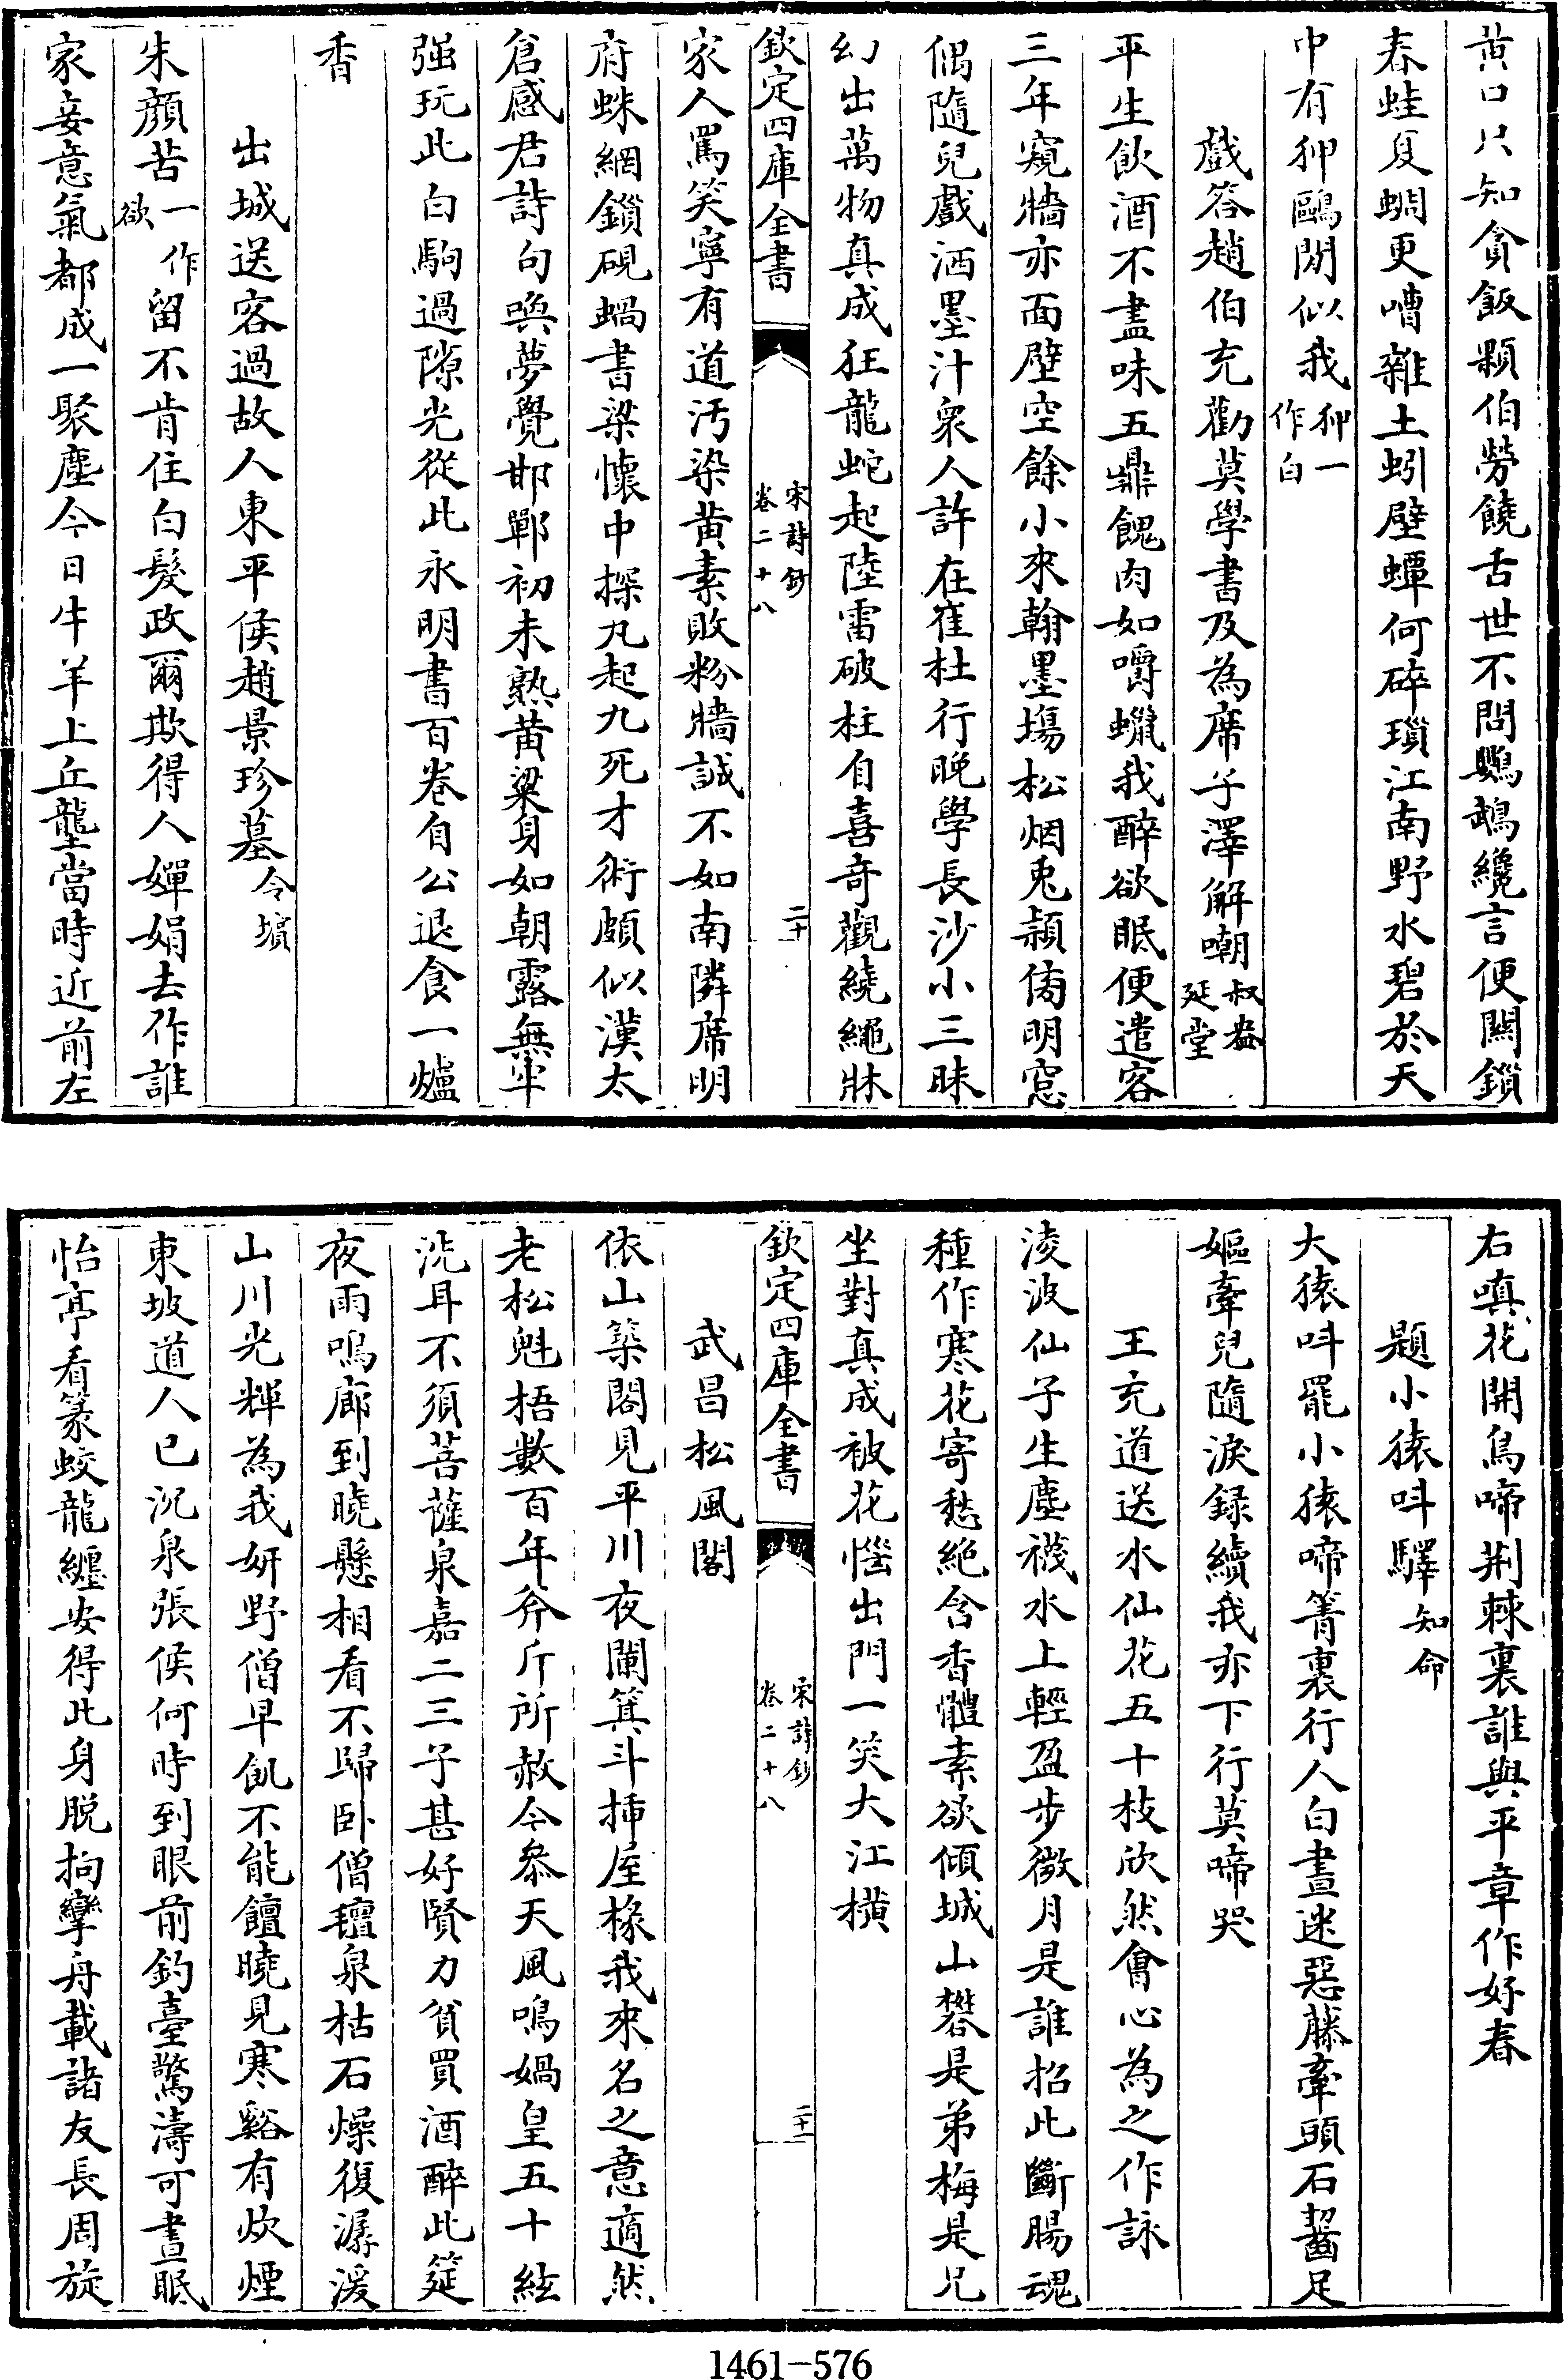 黄口只知貪飯顆伯勞饒舌世不問鸚鵡纔言便闗鎖
春蛙夏蜩更嘈雜土蚓壁蟫何碎瑣江南野水碧於天
中有狎鷗閒似我狎一作白
戲答趙伯充勸莫學書及為席子澤解嘲叔盎延堂
平生飲酒不盡味五鼎餽肉如嚼蠟我醉欲眠便遣客
三年窺牆亦面壁空餘小來翰墨塲松烟兎頴傍明窓
偶隨兒戲洒墨汁衆人許在崔杜行晚學長沙小三昧
幻出萬物真成狂龍蛇起陸雷破柱自喜竒觀繞繩牀
欽定四庫全書
宋詩鈔
卷二十八
二十
家人罵笑寧有道汚染黄素敗粉牆誠不如南隣席明
府蛛網鎖硯蝸書梁懷中探丸起九死才術頗似漢太
倉感君詩句喚夢覺邯鄲初未熟黄粱身如朝露無牢
强玩此白駒過隙光從此永明書百卷自公退食一爐
香
出城送客過故人東平侯趙景珍墓令墳
朱顔苦一作欲留不肯住白髮政爾欺得人嬋娟去作誰
家妾意氣都成一聚塵今日牛羊上丘壟當時近前左
右嗔花開鳥啼荆棘裏誰與平章作好春
題小猿呌驛知命
大猿呌罷小猿啼箐裏行人白晝迷惡藤牽頭石齧足
嫗牽兒隨淚録續我亦下行莫啼哭
王充道送水仙花五十枝欣然會心為之作詠
淩波仙子生塵襪水上輕盈步微月是誰招此斷腸魂
種作寒花寄愁絶含香體素欲傾城山礬是弟梅是兄
坐對真成被花惱出門一笑大江横
欽定四庫全書
宋詩鈔
卷二十八
二十一
武昌松風閣
依山築閣見平川夜闌箕斗揷屋椽我來名之意適然
老松魁梧數百年斧斤所赦今叅天風鳴媧皇五十絃
洗耳不須菩薩泉嘉二三子甚好賢力貧買酒醉此筵
夜雨鳴廊到曉懸相看不歸卧僧氊泉枯石燥復潺湲
山川光輝為我妍野僧早飢不能饘曉見寒谿有炊煙
東坡道人已沉泉張侯何時到眼前釣臺驚濤可晝眠
怡亭看篆蛟龍纏安得此身脱拘攣舟載諸友長周旋
1461-576